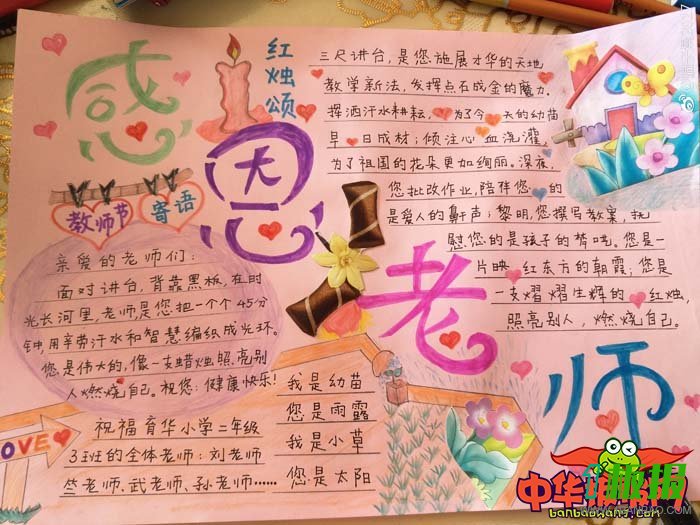 感恩老师
红烛颂
三尺讲台,是您施展才华的天地
教学新法,发挥点石成金的魔力.
挥洒汗水耕耘,为了今天的幼苗
早日成材;倾注心血浇灌,
为了祖国的花朵更加绚丽。深夜,
您批改作业,陪伴您的
是爱人的鼾声;黎明,您撰写教案,抚
慰您的是孩子的梦呓。您是一
片映红东方的朝霞;您是
一支熠熠生辉的红烛,
照亮别人,燃烧自己。
教师节寄语
亲爱的老师们:
面对讲台,背靠黑板,在时
光长河里,老师,是您把一个个45分
钟,用辛劳汗水和智慧编织成光环。
您是伟大的,像一支蜡烛照亮别
人燃烧自己。祝您:健康快乐!
LOVE
祝福育华小学二年级
3班的全体老师:刘老师
老师、武老师、孙老师……
我是幼苗
您是雨露
我是小草
您是太阳
中华